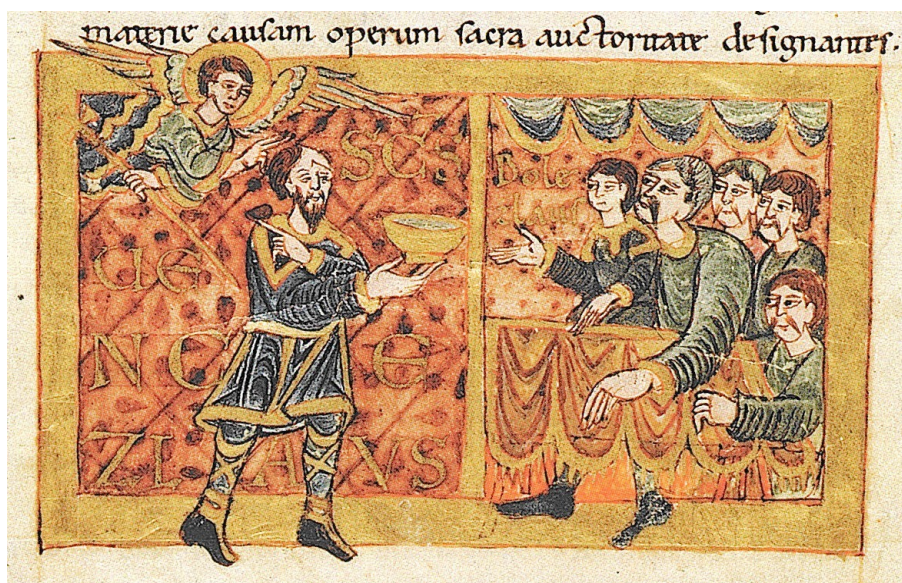 materie causam operum sacra auctoritate designantes.
SCS
UE
NC E
ZLAVS
Bole
zlaus